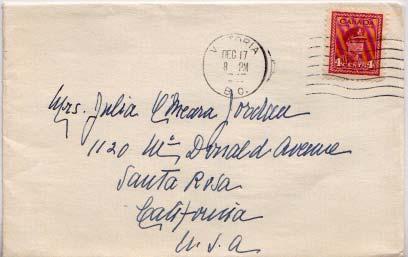 VICTORIA
DEC 17
8 PM
B.C.
CANADA
4 CENTS 4
Mrs. Julia O'Meara
1120 Mc Donald Avenue
Santa Rosa
California
U.S.A